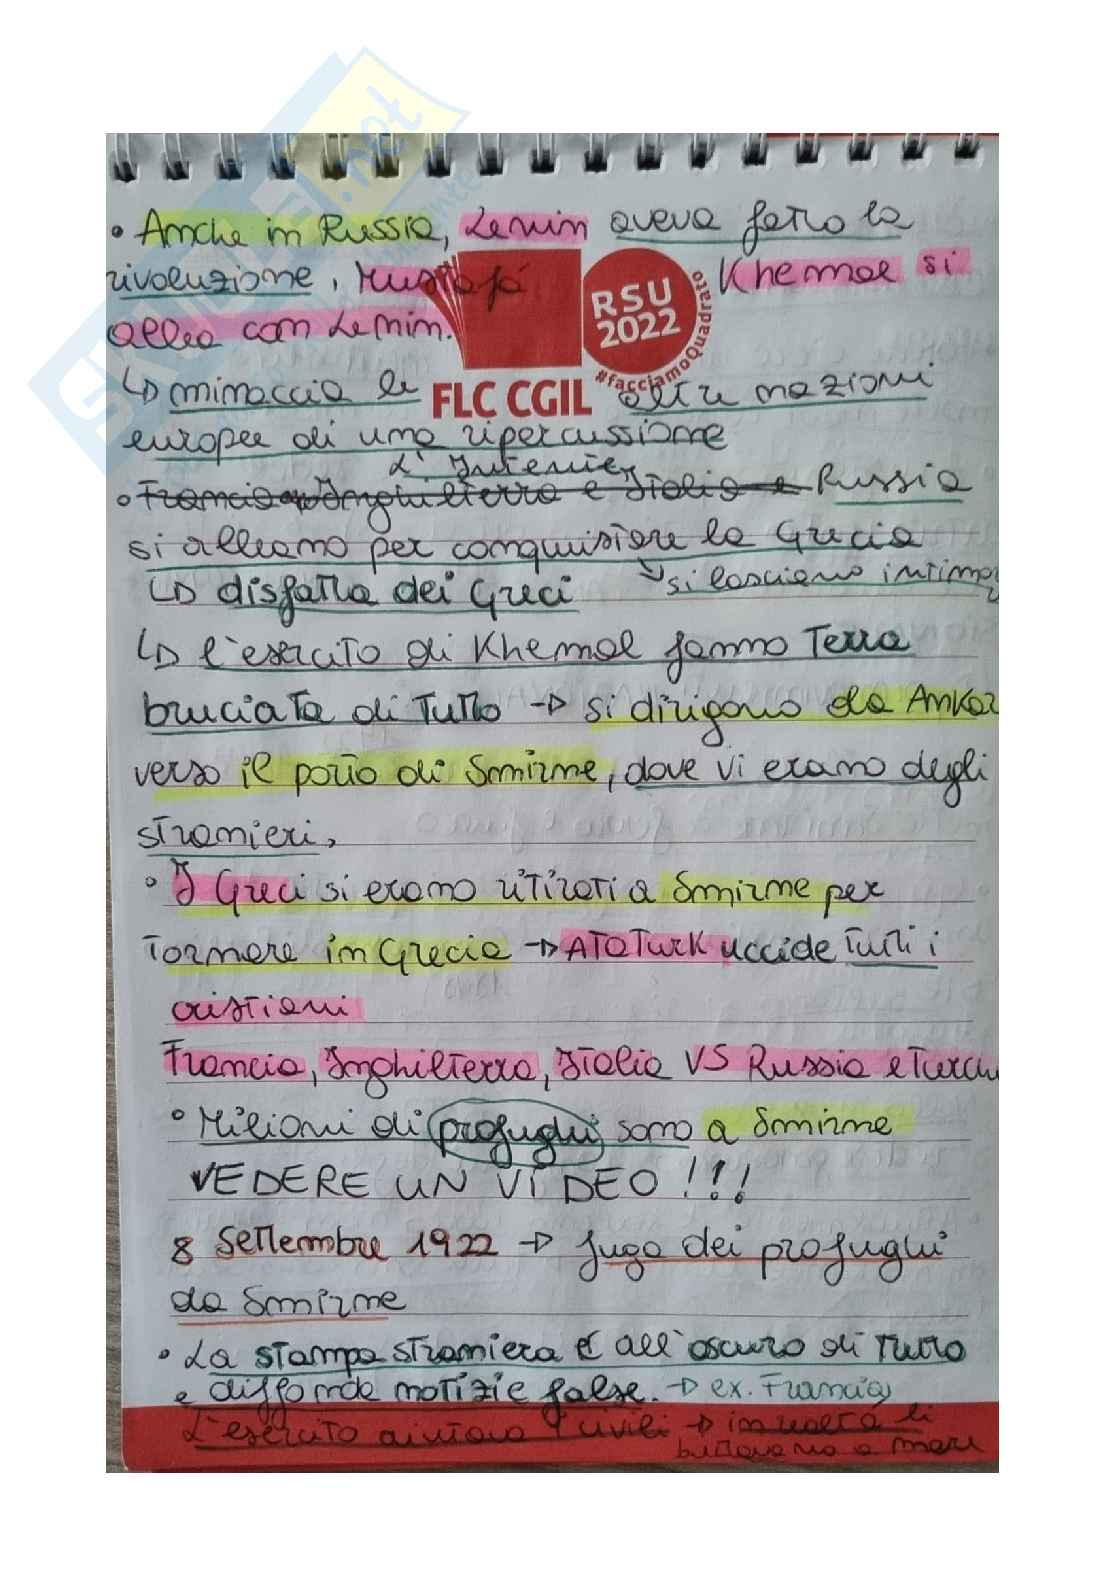 SKUOLA.net
• Anche in Russia, Lenin aveva fatto la
rivoluzione, Mustafá Khemal si
allea con Lenin.
RSU
2022
#facciamoQuadrato
FLC CGIL
↳ minaccia le altre nazioni
europee di una ripercussione
L'Interie
• Francia Inghilterra e Italia e Russia
si alleano per conquistare la Grecia
↳ disfatta dei Greci ↳ si lasciano intimo
↳ l'esercito di Khemal fanno Terra
bruciata di Tutto → si dirigono da Ankar
verso il porto di Smirne, dove vi erano degli
stranieri,
• I Greci si erano ritirati a Smirne per
Tornare in Grecia → ATATURK uccide tutti i
cristiani
Francia, Inghilterra, Italia VS Russia e Turchi
• Milioni di profughi sono a Smirne
VEDERE UN VIDEO !!!
8 Settembre 1922 → fuga dei profughi
da Smirne
• La stampa straniera è all'oscuro di Tutto
e diffonde notizie false. → ex. Francia
L'esercito aiutava i civili → in realtà li
buttavano a mare